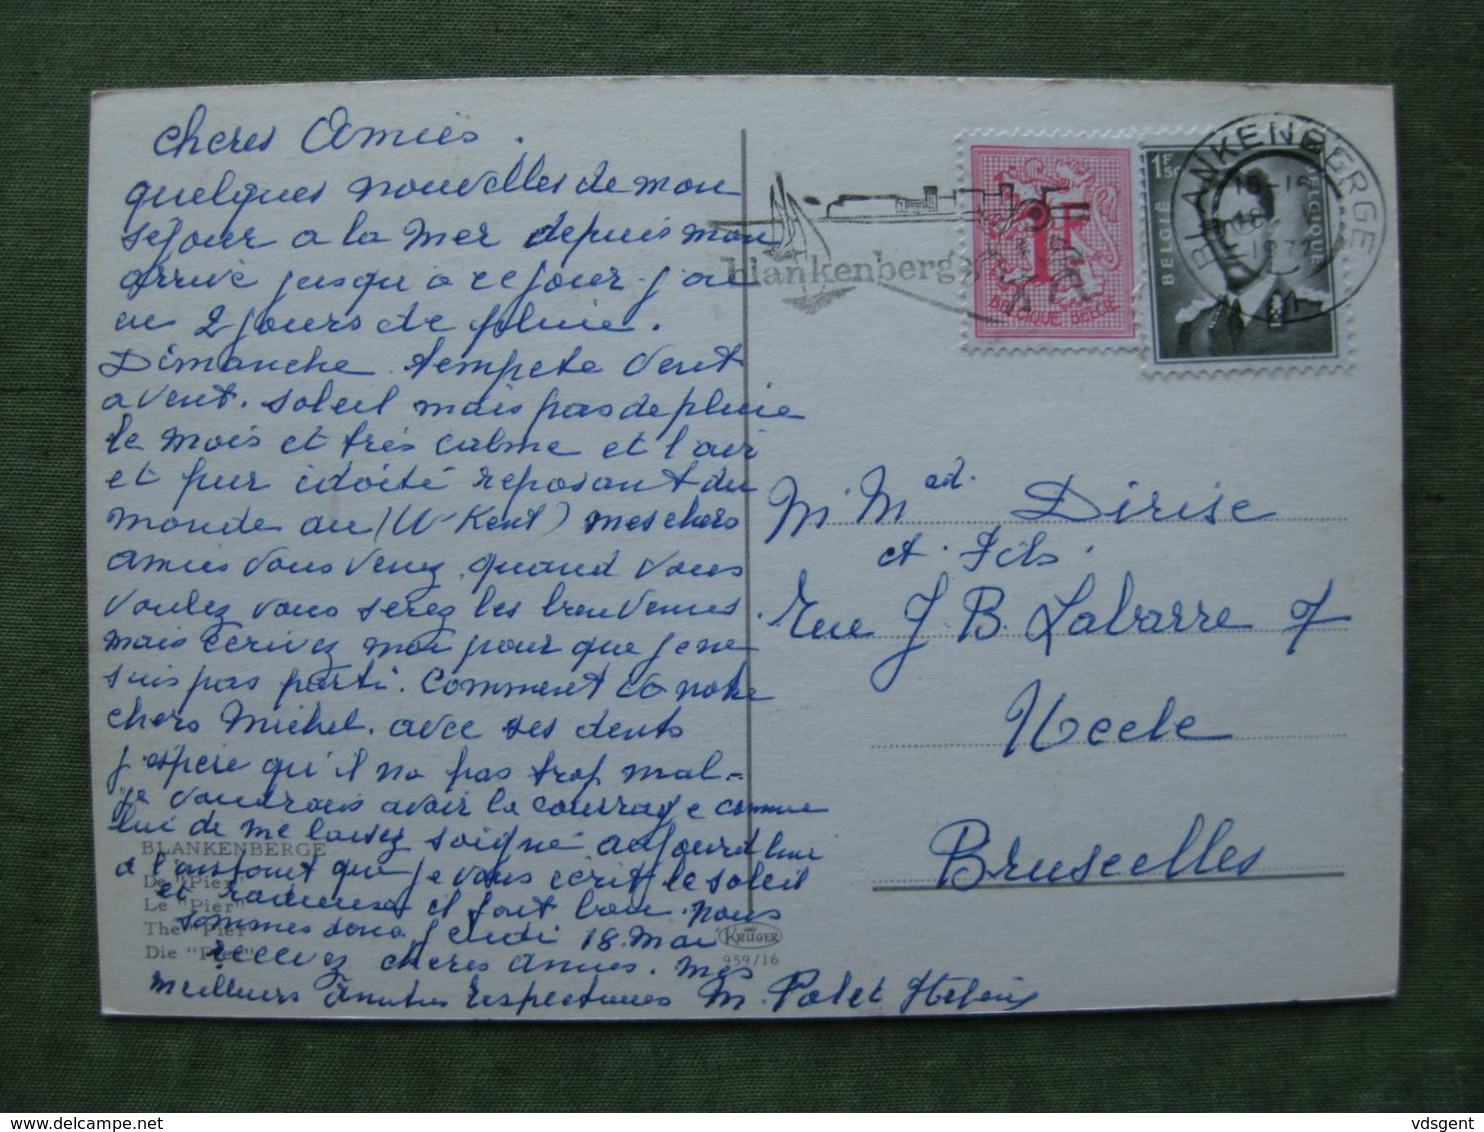 cheres Amies.
quelques nouvelles de mon
sejour a la mer depuis mon
arrivé jusqu'a ce jour j'ai
eu 2 jours de pluie.
Dimanche tempete vent
avent. soleil mais pas de pluie
le mois et trés calme et l'air
et pur idoité reposant du
monde au (W-Kent) mes chers
amies vous venez quand vous
voulez vous serez les bienvenus.
mais ècrivez moi pour que je ne
suis pas parti. comment va notre
chers Michel. avec ses dents
j'espère qu'il na pas trop mal-
je voudrais avoir la courrage comme
lui de me laissez soigné aujourd'hui
a l'instant que je vous écrit le soleil
et il fait bon. nous
sommes donc jeudi 18. Mai
recevez cheres amies. mes
meilleurs Amities respectueuses M. Polet
BLANKENBERGE
De "Pier"
Le "Pier"
The "Pier"
Die "Pier"
KRÜGER
959/16
blankenberge
1F
BELGIQUE BELGIE
1F50
BELGIË
BELGIQUE
BLANKENBERGE
M. Mad. Dirise
et. Fils.
Rue J. B. Labarre 7
Uccle
Bruxelles
www.delcampe.net
vdsgent